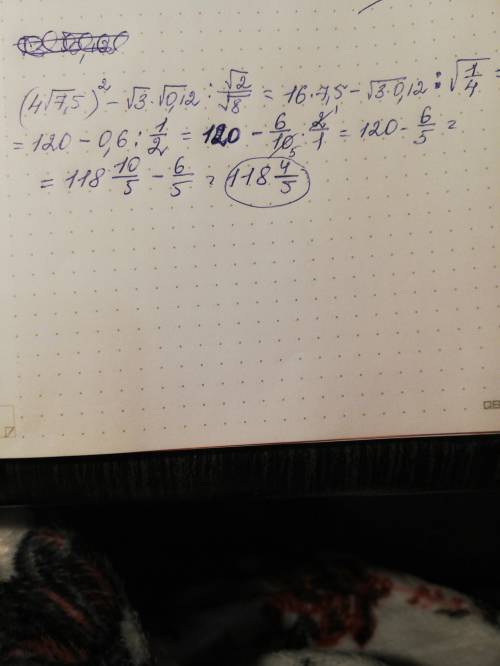 (4√7,5)² - √3 · √0,12 : √2/√8 = 16 · 7,5 - √3·0,12 : √1/4 =
= 120 - 0,6 : 1/2 = 120 - 6/10 5 · 2 1/1 = 120 - 6/5 =
= 118 10/5 - 6/5 = 118 4/5